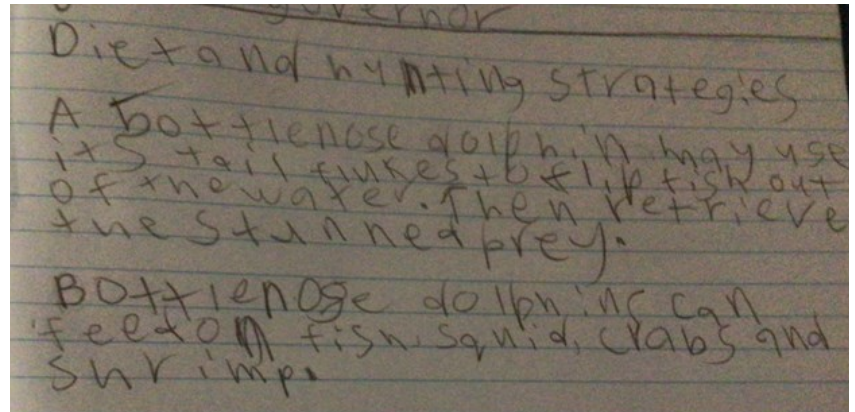 governor
Diet and hunting strategies
A bottlenose dolphin may use
its tail flukes to flip fish out
of the water. Then retrieve
the stunned prey.
Bottlenose dolphins can
feed on fish, squid, crabs and
shrimp.